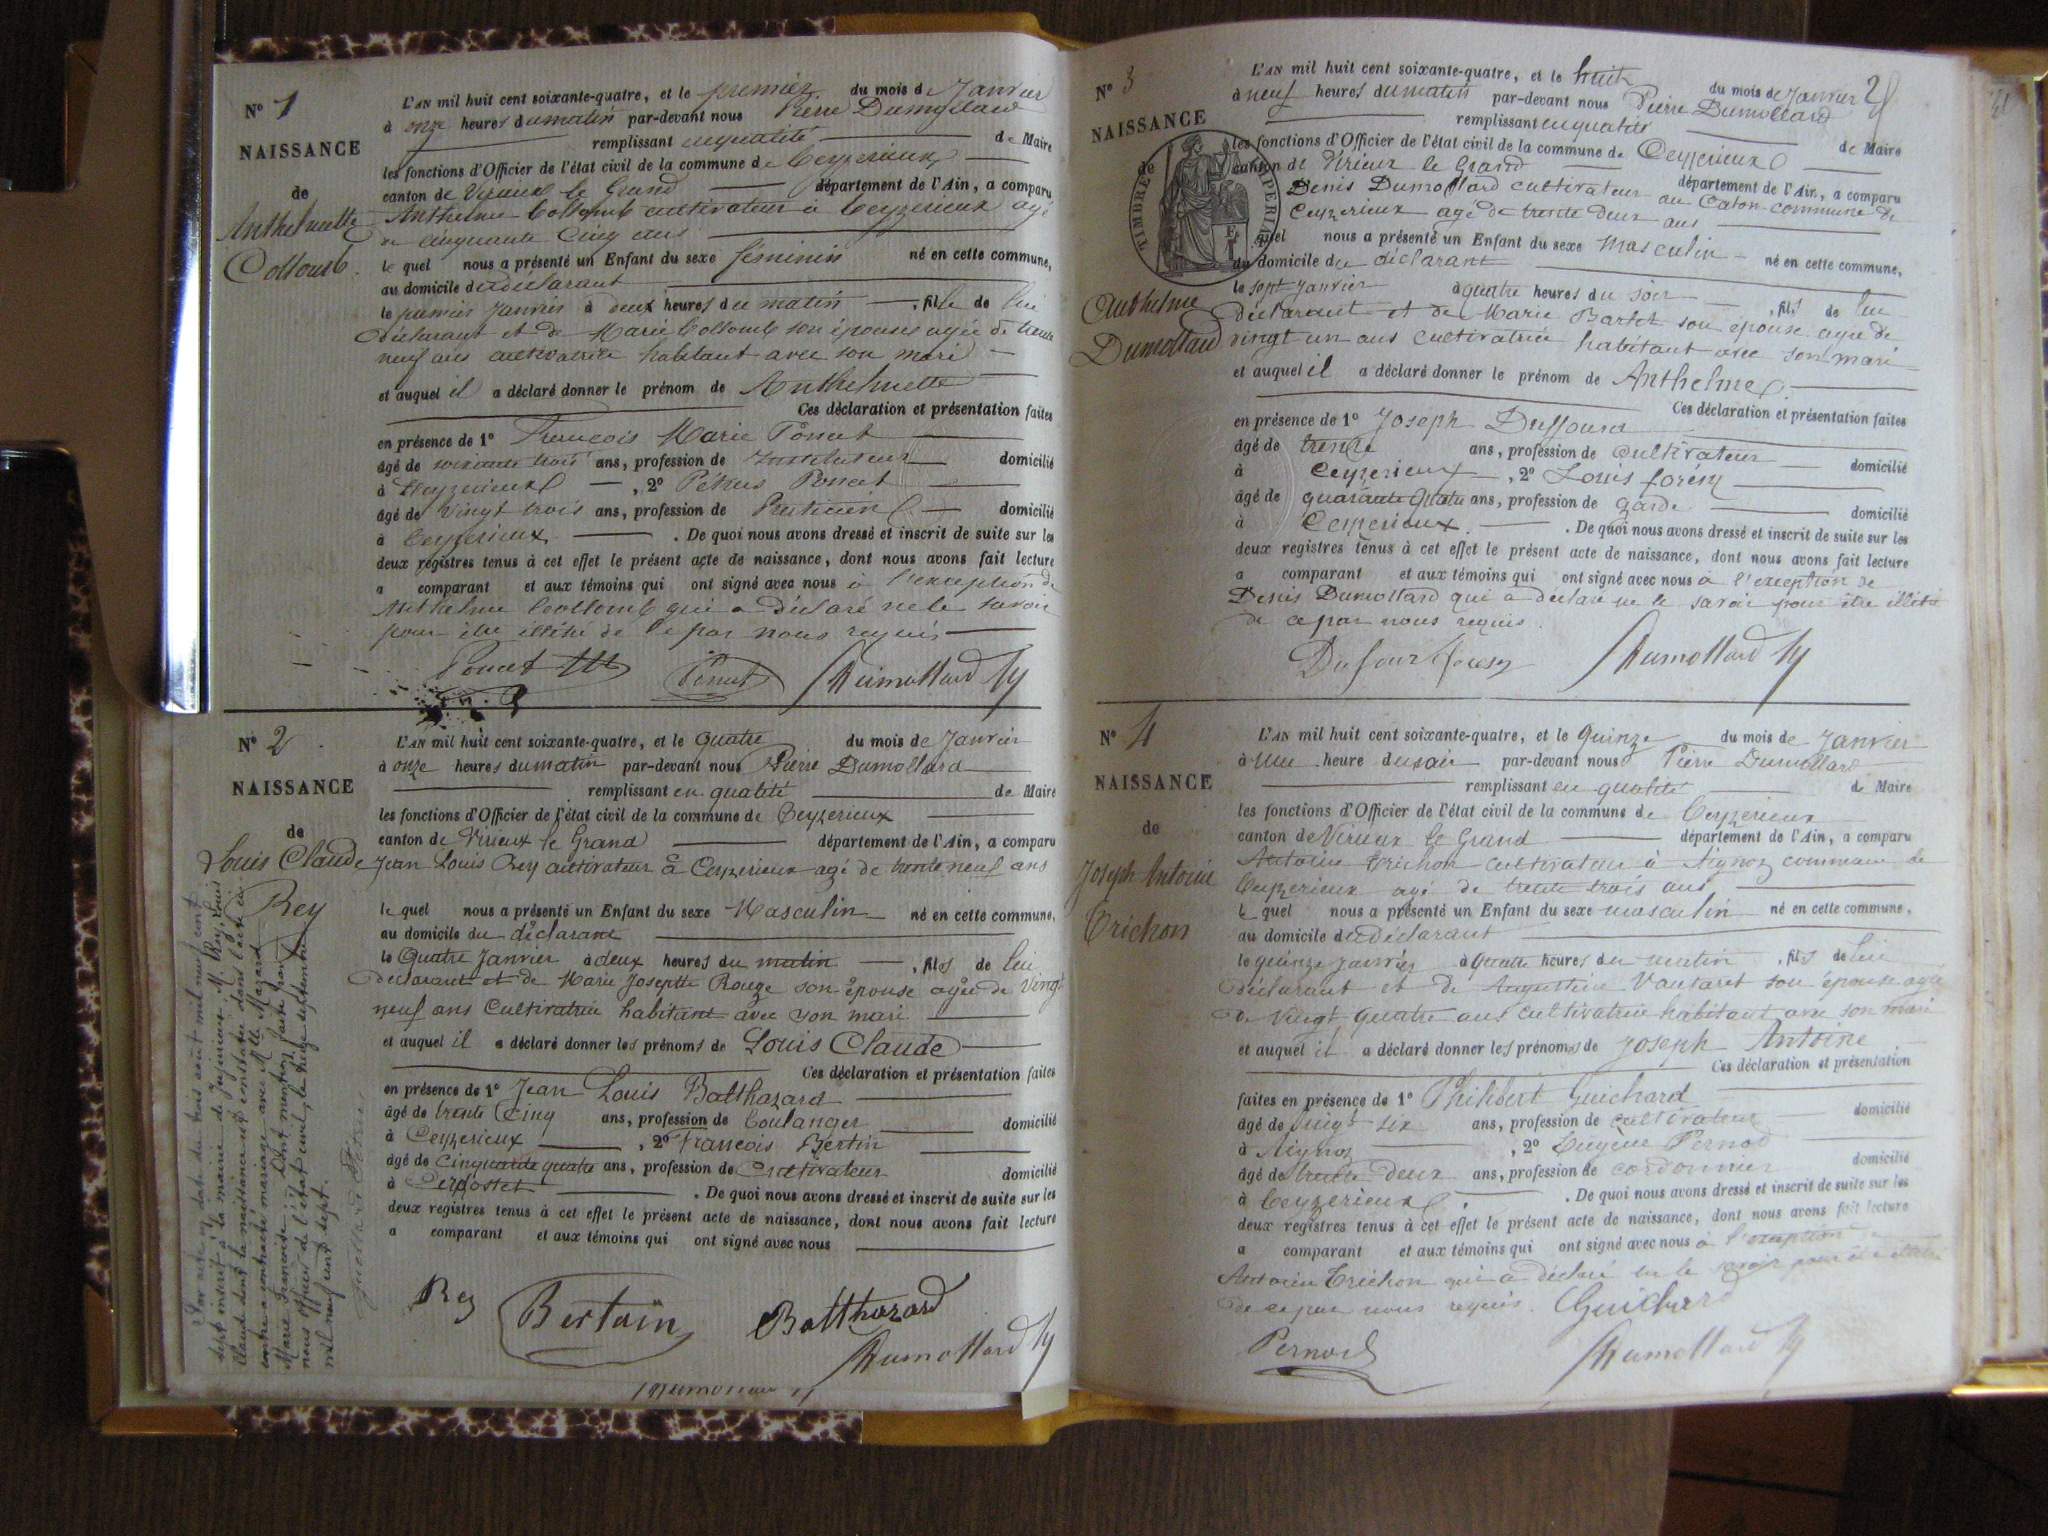 N° 1
NAISSANCE
de
Anthelmette
Collomb.
L'AN mil huit cent soixante-quatre, et le premier du mois de Janvier
à onze heures du matin par-devant nous Pierre Dumollard
remplissant en qualité de Maire
les fonctions d'Officier de l'état civil de la commune de Ceyzerieux
canton de Virieux le Grand département de l'Ain, a comparu
Anthelme Collomb cultivateur à Ceyzerieux agé
de cinquante cinq ans
le quel nous a présenté un Enfant du sexe féminin né en cette commune,
au domicile du déclarant
le premier Janvier à deux heures du matin, fille de lui
déclarant et de Marie Collomb son épouse agée de trente
neuf ans cultivatrice habitant avec son mari
et auquel il a déclaré donner le prénom de Anthelmette
Ces déclaration et présentation faites
en présence de 1° François Marie Poncet
âgé de soixante trois ans, profession de Instituteur domicilié
à Ceyzerieux, 2° Pétrus Poncet
âgé de vingt trois ans, profession de Praticien domicilié
à Ceyzerieux. De quoi nous avons dressé et inscrit de suite sur les
deux registres tenus à cet effet le présent acte de naissance, dont nous avons fait lecture
a comparant et aux témoins qui ont signé avec nous à l'exception de
Anthelme Collomb qui a déclaré ne le savoir
pour être illétré de ce par nous requis
Poncet Poncet Dumollard
N° 2
NAISSANCE
de
Louis Claude
Rey
L'AN mil huit cent soixante-quatre, et le quatre du mois de Janvier
à onze heures du matin par-devant nous Pierre Dumollard
remplissant en qualité de Maire
les fonctions d'Officier de l'état civil de la commune de Ceyzerieux
canton de Virieux le Grand département de l'Ain, a comparu
Jean Louis Rey cultivateur à Ceyzerieux agé de trente neuf ans
le quel nous a présenté un Enfant du sexe Masculin né en cette commune,
au domicile du déclarant
le Quatre Janvier à deux heures du matin, fils de lui
déclarant et de Marie Josephte Rouge son épouse agée de vingt
neuf ans Cultivatrice habitant avec son mari
et auquel il a déclaré donner les prénoms de Louis Claude
Ces déclaration et présentation faites
en présence de 1° Jean Louis Balthazard
âgé de trente cinq ans, profession de boulanger domicilié
à Ceyzerieux, 2° François Bertin
âgé de cinquante quatre ans, profession de Cultivateur domicilié
à. De quoi nous avons dressé et inscrit de suite sur les
deux registres tenus à cet effet le présent acte de naissance, dont nous avons fait lecture
a comparant et aux témoins qui ont signé avec nous
Rey Bertain Balthazard
Dumollard
Par acte en date du trois août mil neuf cent
sept inscrit à la mairie de Jujurieux M. Rey Louis
Claude dont la naissance est constatée dans l'acte ci
contre a contracté mariage avec Mlle Mazard
Marie Françoise. Dont mention faite par
nous officier de l'état civil, le treize septembre
mil neuf cent sept.
N° 3
NAISSANCE
de
TIMBRE IMPERIAL
Anthelme
Dumollard
L'AN mil huit cent soixante-quatre, et le huit du mois de Janvier
à neuf heures du matin par-devant nous Pierre Dumollard
remplissant en qualité de Maire
les fonctions d'Officier de l'état civil de la commune de Ceyzerieux
canton de Virieux le Grand département de l'Ain, a comparu
Denis Dumollard cultivateur au Caton commune de
Ceyzerieux agé de trente deux ans
le quel nous a présenté un Enfant du sexe masculin né en cette commune,
au domicile du déclarant
le sept Janvier à quatre heures du soir, fils de lui
déclarant et de Marie son épouse agée de
vingt un ans cultivatrice habitant avec son mari
et auquel il a déclaré donner le prénom de Anthelme
Ces déclaration et présentation faites
en présence de 1° Joseph Duffour
âgé de trente ans, profession de cultivateur domicilié
à Ceyzerieux, 2° Louis
âgé de quarante quatre ans, profession de garde domicilié
à Ceyzerieux. De quoi nous avons dressé et inscrit de suite sur les
deux registres tenus à cet effet le présent acte de naissance, dont nous avons fait lecture
a comparant et aux témoins qui ont signé avec nous à l'exception de
Denis Dumollard qui a déclaré ne le savoir pour être illétré
de ce par nous requis.
Dufour Dumollard
N° 4
NAISSANCE
de
Joseph Antoine
Trichon
L'AN mil huit cent soixante-quatre, et le quinze du mois de Janvier
à une heure du soir par-devant nous Pierre Dumollard
remplissant en qualité de Maire
les fonctions d'Officier de l'état civil de la commune de Ceyzerieux
canton de Virieux le Grand département de l'Ain, a comparu
Antoine Trichon cultivateur à Aignoz commune de
Ceyzerieux agé de trente trois ans
le quel nous a présenté un Enfant du sexe masculin né en cette commune,
au domicile du déclarant
le quinze Janvier à quatre heures du matin, fils de lui
déclarant et de Augustine Vautaret son épouse agée
de vingt quatre ans cultivatrice habitant avec son mari
et auquel il a déclaré donner les prénoms de Joseph Antoine
Ces déclaration et présentation
faites en présence de 1° Philibert Guichard
âgé de vingt six ans, profession de cultivateur domicilié
à Aignoz, 2° Eugène Pernod
âgé de trente deux ans, profession de cordonnier domicilié
à Ceyzerieux. De quoi nous avons dressé et inscrit de suite sur les
deux registres tenus à cet effet le présent acte de naissance, dont nous avons fait lecture
a comparant et aux témoins qui ont signé avec nous à l'exception
Antoine Trichon qui a déclaré ne le savoir pour être illétré
de ce par nous requis. Guichard
Pernod Dumollard